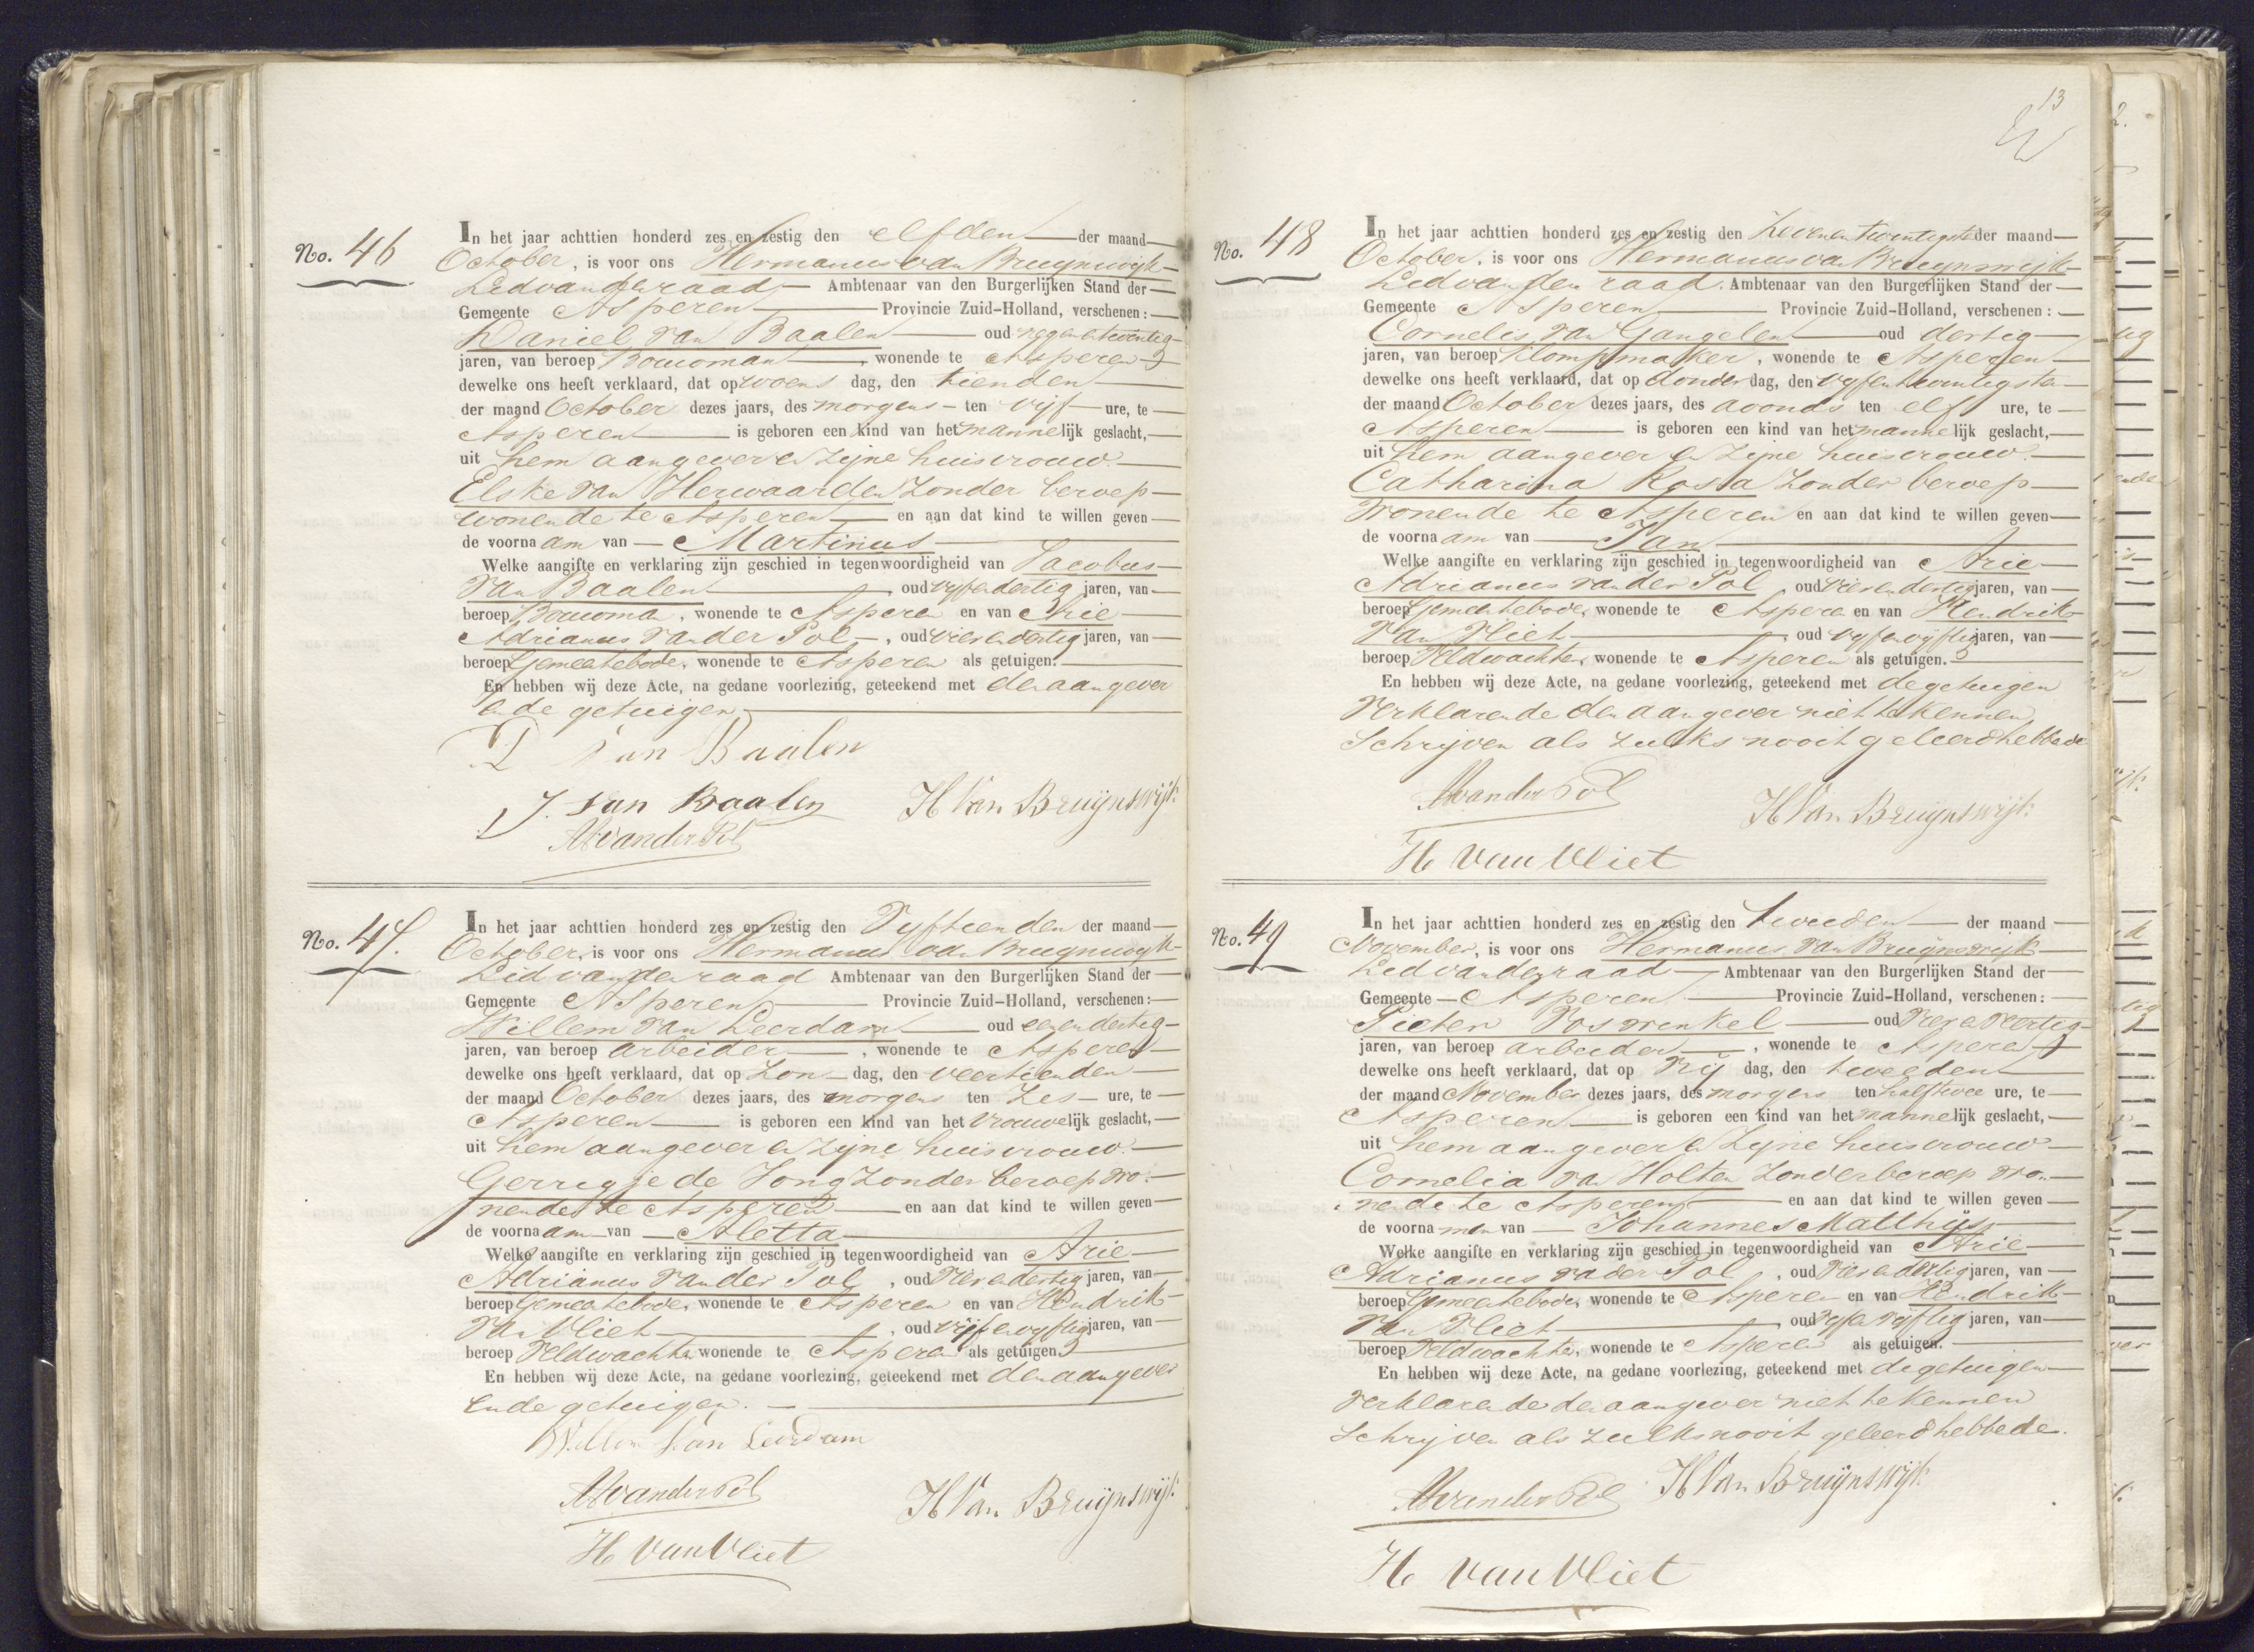 No. 46
In het jaar achttien honderd zes en zestig den elfden der maand
October, is voor ons Hermanus van Bruynswijk
Lid van den raad Ambtenaar van den Burgerlijken Stand der
Gemeente Asperen Provincie Zuid-Holland, verschenen:
Daniel van Baalen oud negenentwintig
jaren, van beroep Bouwman, wonende te Asperen
dewelke ons heeft verklaard, dat op woens dag, den tienden
der maand October dezes jaars, des morgens ten vijf ure, te
Asperen is geboren een kind van het mannelijk geslacht,
uit hem aangever en zijne huisvrouw
Elske van Herwaarden zonder beroep
wonende te Asperen en aan dat kind te willen geven
de voornaam van Martinus
Welke aangifte en verklaring zijn geschied in tegenwoordigheid van Jacobus
van Baalen oud vijfendertig jaren, van
beroep Bouwman, wonende te Asperen en van Arie
Adrianus van der Pol, oud vierendertig jaren, van
beroep Gemeentebode, wonende te Asperen als getuigen.
En hebben wij deze Acte, na gedane voorlezing, geteekend met den aangever
en de getuigen
D van Baalen
J. van Baalen H Van Bruijnswijk
AAvanderPol
No. 47.
In het jaar achttien honderd zes en zestig den Vyftienden der maand
October, is voor ons Hermanus van Bruynswyk
Lid van den raad Ambtenaar van den Burgerlijken Stand der
Gemeente Asperen Provincie Zuid-Holland, verschenen:
Willem van Leerdam oud eenendertig
jaren, van beroep arbeider, wonende te Asperen
dewelke ons heeft verklaard, dat op Zon dag, den veertienden
der maand October dezes jaars, des morgens ten Zes ure, te
Asperen is geboren een kind van het vrouwelijk geslacht,
uit hem aangever en zijne huisvrouw
Gerrigje de Jong zonder beroep wo-
nende te Asperen en aan dat kind te willen geven
de voornaam van Aletta
Welke aangifte en verklaring zijn geschied in tegenwoordigheid van Arie
Adrianus van der Pol, oud vierendertig jaren, van
beroep Gemeentebode, wonende te Asperen en van Hendrik
van Vliet, oud vijfenvyftig jaren, van
beroep Veldwachter wonende te Asperen als getuigen.
En hebben wij deze Acte, na gedane voorlezing, geteekend met den aangever
en de getuigen.
Willem van Leerdam
AAvanderPol H Van Bruijnswijk
H van Vliet
13
No. 48
In het jaar achttien honderd zes en zestig den Zevenentwintigste der maand
October, is voor ons Hermanus van Bruynswijk
Lid van den raad. Ambtenaar van den Burgerlijken Stand der
Gemeente Asperen Provincie Zuid-Holland, verschenen:
Cornelis van Gangelen oud dertig
jaren, van beroep Klompmaker, wonende te Asperen
dewelke ons heeft verklaard, dat op donder dag, den vyfentwintigsten
der maand October dezes jaars, des avonds ten elf ure, te
Asperen is geboren een kind van het mannelijk geslacht,
uit hem aangever en zijne huisvrouw
Catharina Rosa zonder beroep
wonende te Asperen en aan dat kind te willen geven
de voornaam van Jan
Welke aangifte en verklaring zijn geschied in tegenwoordigheid van Arie
Adrianus van der Pol, oud vierendertig jaren, van
beroep Gemeentebode, wonende te Asperen en van Hendrik
van Vliet, oud vyfenvyftig jaren, van
beroep Veldwachter, wonende te Asperen als getuigen.
En hebben wij deze Acte, na gedane voorlezing, geteekend met de getuigen
verklarende den aangever niet te kennen
Schrijven als zulks nooit geleerd hebbende
AAvanderPol H Van Bruijnswijk
H van Vliet
No. 49
In het jaar achttien honderd zes en zestig den tweeden der maand
November, is voor ons Hermanus van Bruynswyk
Lid van den raad Ambtenaar van den Burgerlijken Stand der
Gemeente Asperen Provincie Zuid-Holland, verschenen:
Pieter Voswinkel oud
jaren, van beroep arbeider, wonende te Asperen
dewelke ons heeft verklaard, dat op Vrij dag, den tweeden
der maand November dezes jaars, des morgens ten halftwee ure, te
Asperen is geboren een kind van het mannelijk geslacht,
uit hem aangever en zijne huisvrouw
Cornelia van Holten zonder beroep wo-
nende te Asperen en aan dat kind te willen geven
de voornamen van Johannes Matthijs
Welke aangifte en verklaring zijn geschied in tegenwoordigheid van Arie
Adrianus van der Pol, oud vierendertig jaren, van
beroep Gemeentebode, wonende te Asperen en van Hendrik
van Vliet oud vyfenvyftig jaren, van
beroep Veldwachter, wonende te Asperen als getuigen.
En hebben wij deze Acte, na gedane voorlezing, geteekend met de getuigen
verklarende den aangever niet te kennen
Schrijven als zulks nooit geleerd hebbende.
AAvanderPol H Van Bruijnswijk
H van Vliet